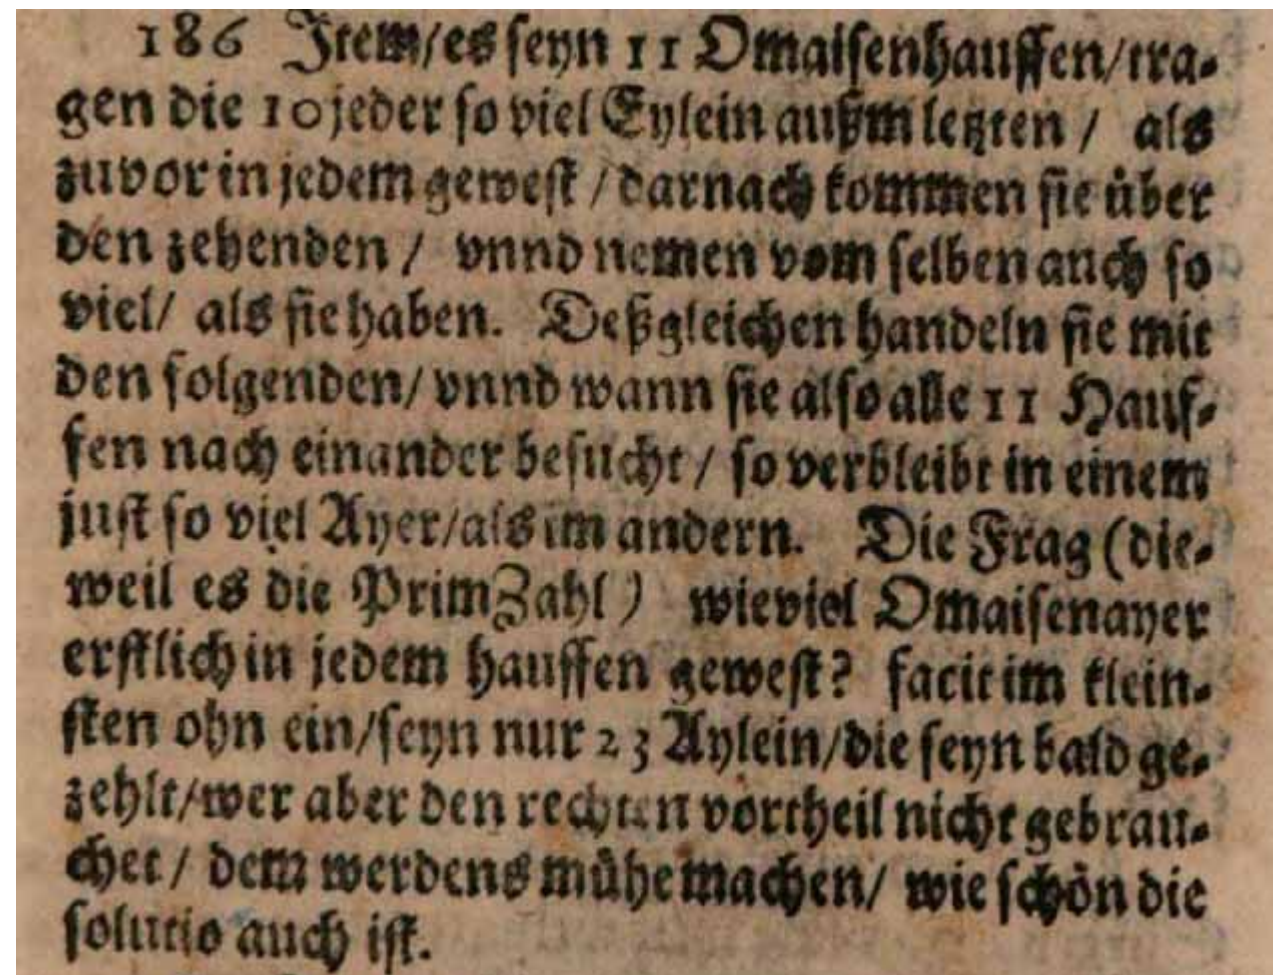 186 Item/es seyn 11 Omaisenhauffen/tra-
gen die 10 jeder so viel Eylein außm letzten / als
zuvor in jedem gewest / darnach kommen sie über
den zehenden / vnnd nemen vom selben auch so
viel/ als sie haben. Deßgleichen handeln sie mit
den folgenden/ vnnd wann sie also alle 11 Hauf-
fen nach einander besucht / so verbleibt in einem
just so viel Ayer/als im andern. Die Frag (die-
weil es die PrimZahl) wieviel Omaisenayer
erstlich in jedem hauffen gewest? facit im klein-
sten ohn ein/seyn nur 23 Aylein/die seyn bald ge-
zehlt/wer aber den rechten vortheil nicht gebrau-
chet / dem werdens mühe machen/ wie schön die
solutio auch ist.